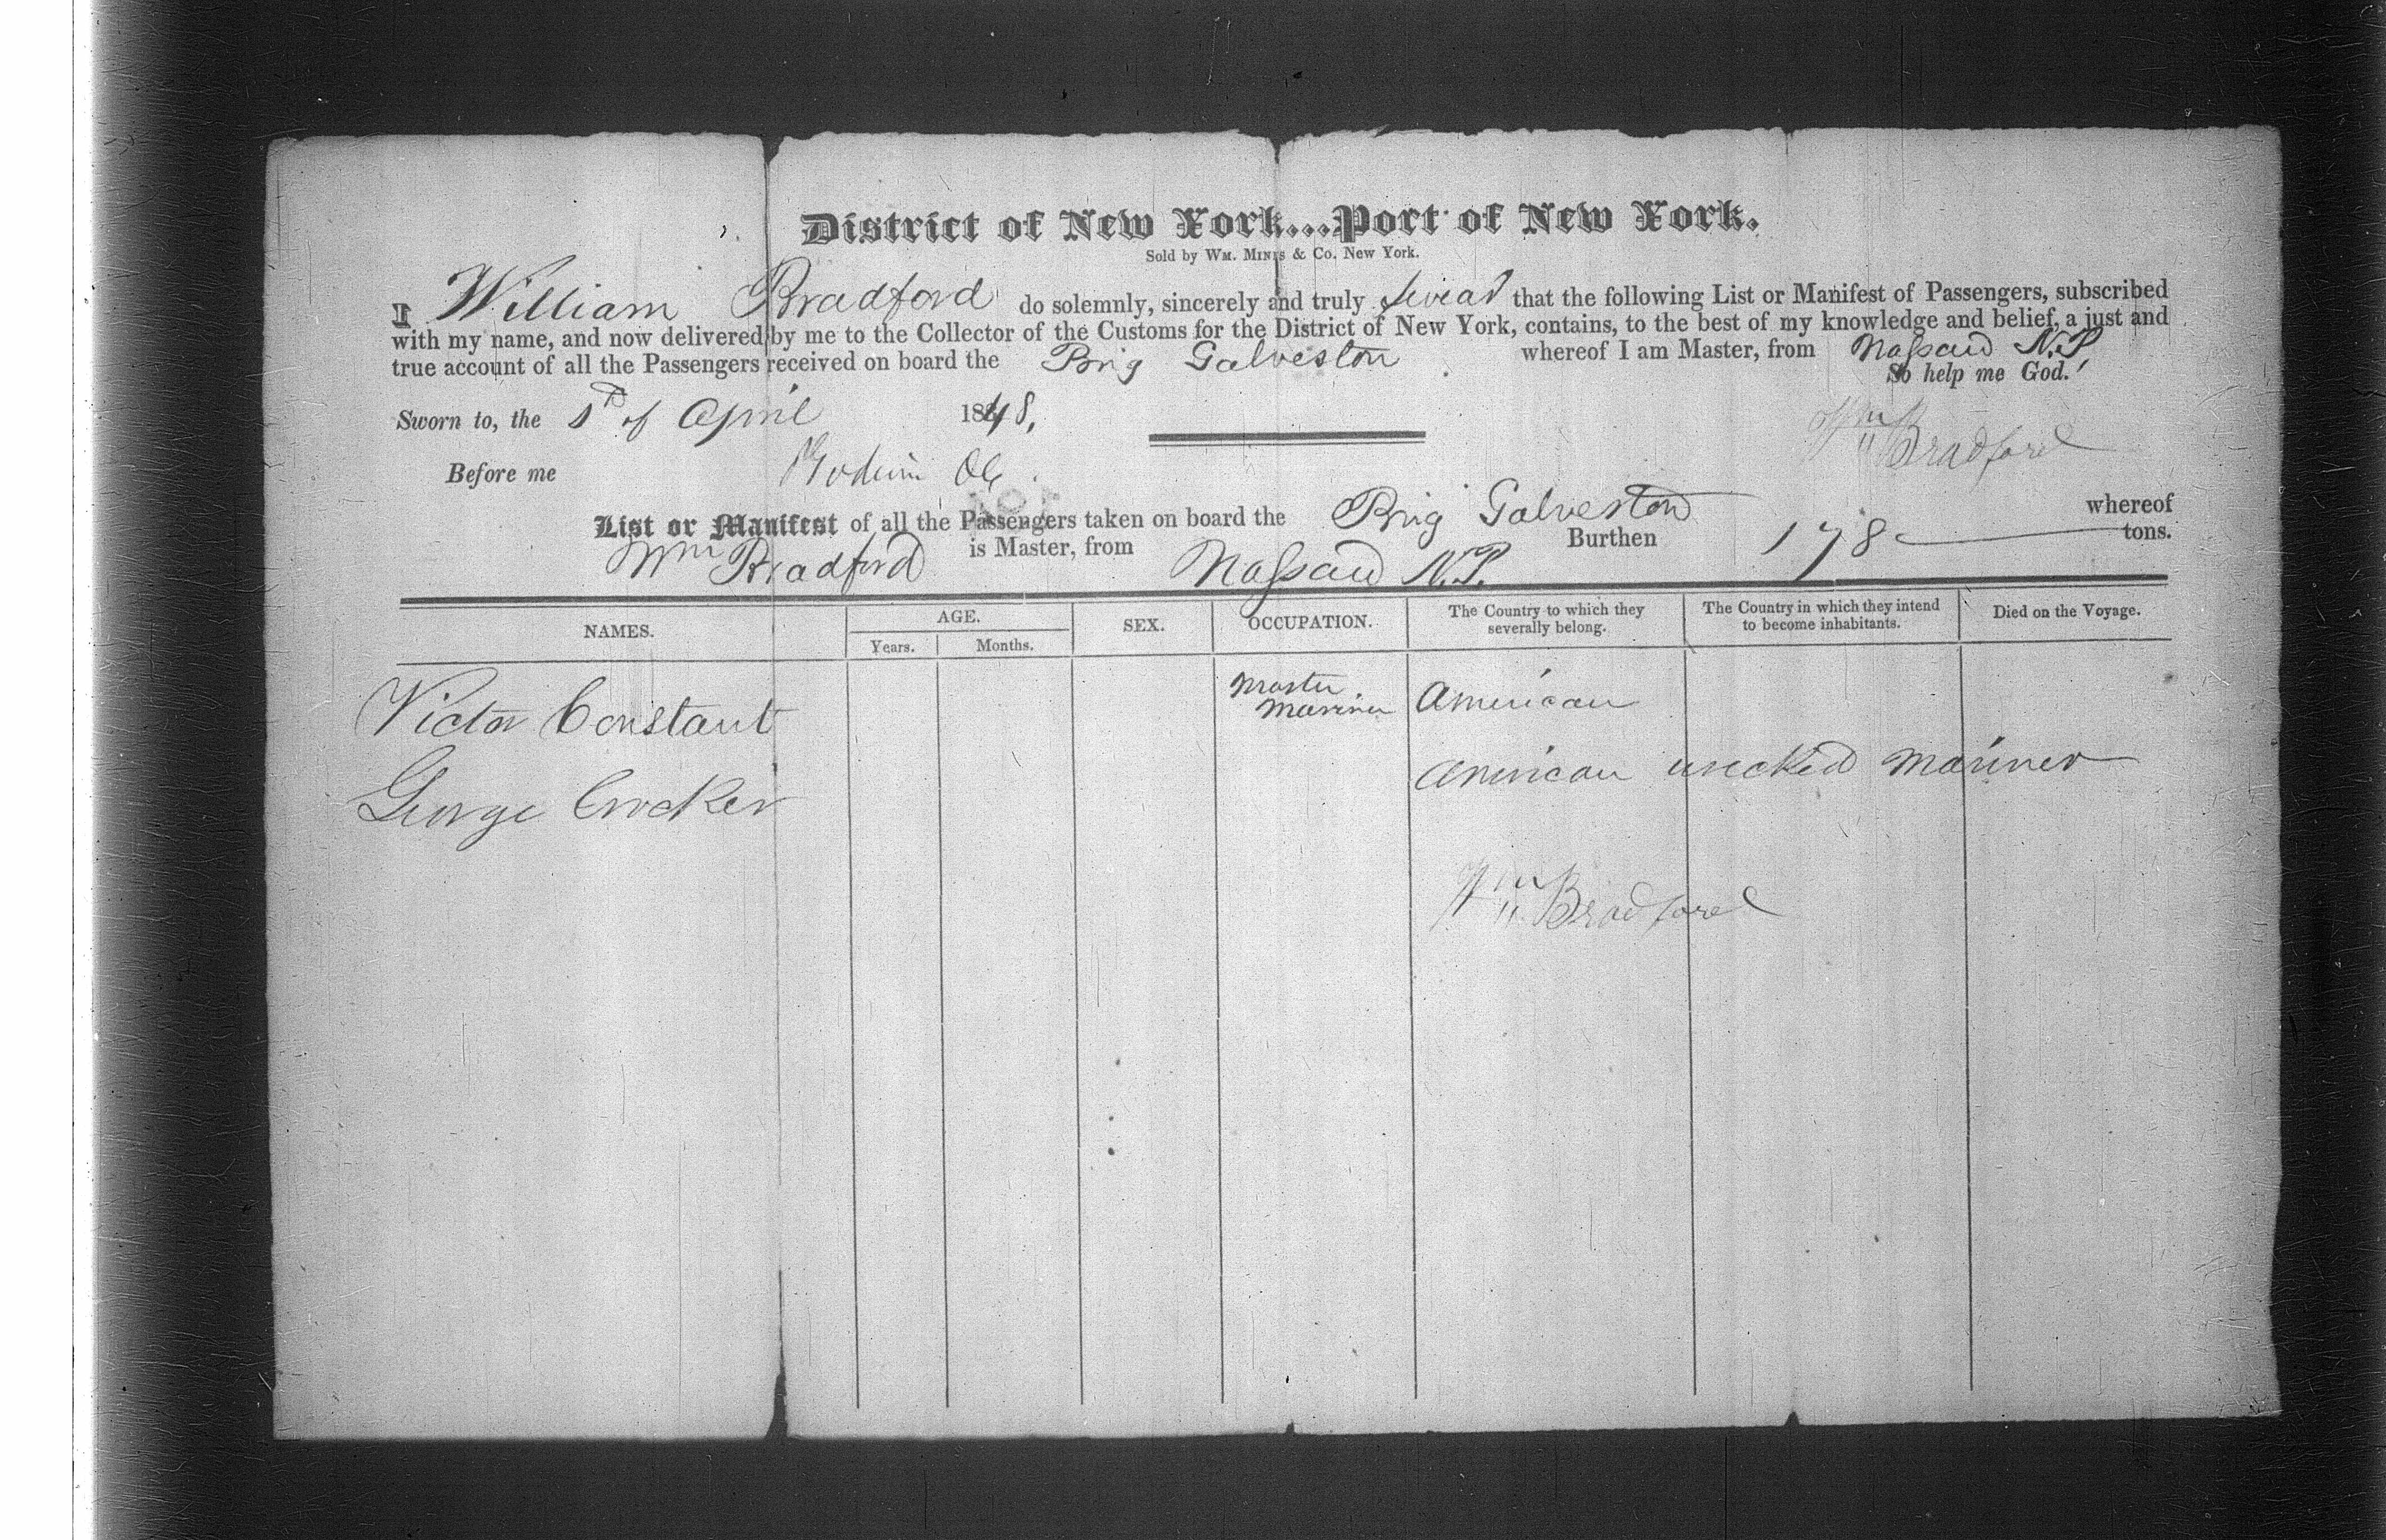 District of New York...Port of New York.
Sold by WM. MINNS & Co. New York.
I William Bradford do solemnly, sincerely and truly swear that the following List or Manifest of Passengers, subscribed
with my name, and now delivered by me to the Collector of the Customs for the District of New York, contains, to the best of my knowledge and belief, a just and
true account of all the Passengers received on board the Brig Galveston whereof I am Master, from Nassau N.P.
So help me God.
Sworn to, the of April 1848,
Wm Bradford
Before me
List or Manifest of all the Passengers taken on board the Brig Galveston whereof
Wm Bradford is Master, from Nassau N.P. Burthen 178 tons.
NAMES. AGE. SEX. OCCUPATION. The Country to which they severally belong. The Country in which they intend to become inhabitants. Died on the Voyage.
Years. Months.
Victor Constant Master Mariner American
George Crocker American wrecked mariner
Wm Bradford